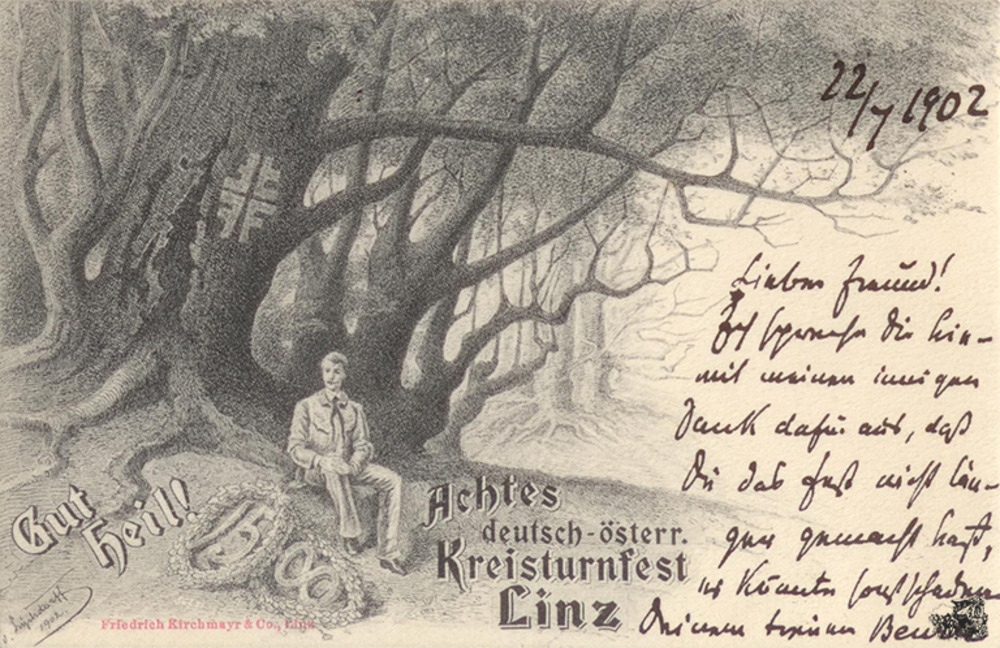 22/7 1902
Lieber Freund!
Ich spreche Dir hie-
mit meinen innigen
Dank dafür aus, daß
Du das Fest nicht län-
ger gemacht hast,
es könnte sonst schaden
Deinem treuen
Gut
Heil!
Achtes
deutsch-österr.
Kreisturnfest
Linz
1902
Friedrich Kirchmayr & Co., Linz